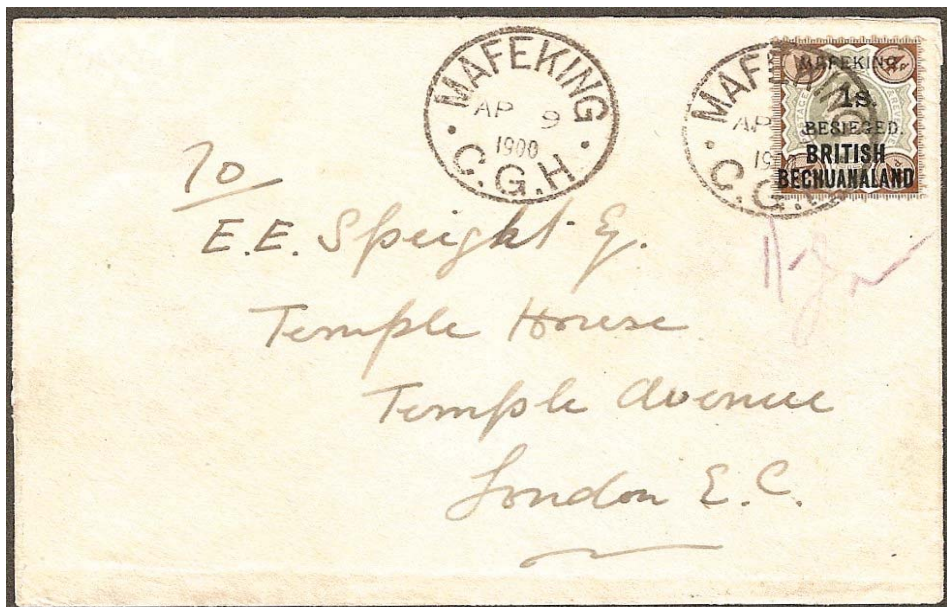 MAFEKING
AP 9
1900
C.G.H.
MAFEKING
AP
190
C.G.
MAFEKING,
1s.
BESIEGED.
BRITISH
BECHUANALAND
To
E.E. Speight Esq.
Temple House
Temple Avenue
London E.C.